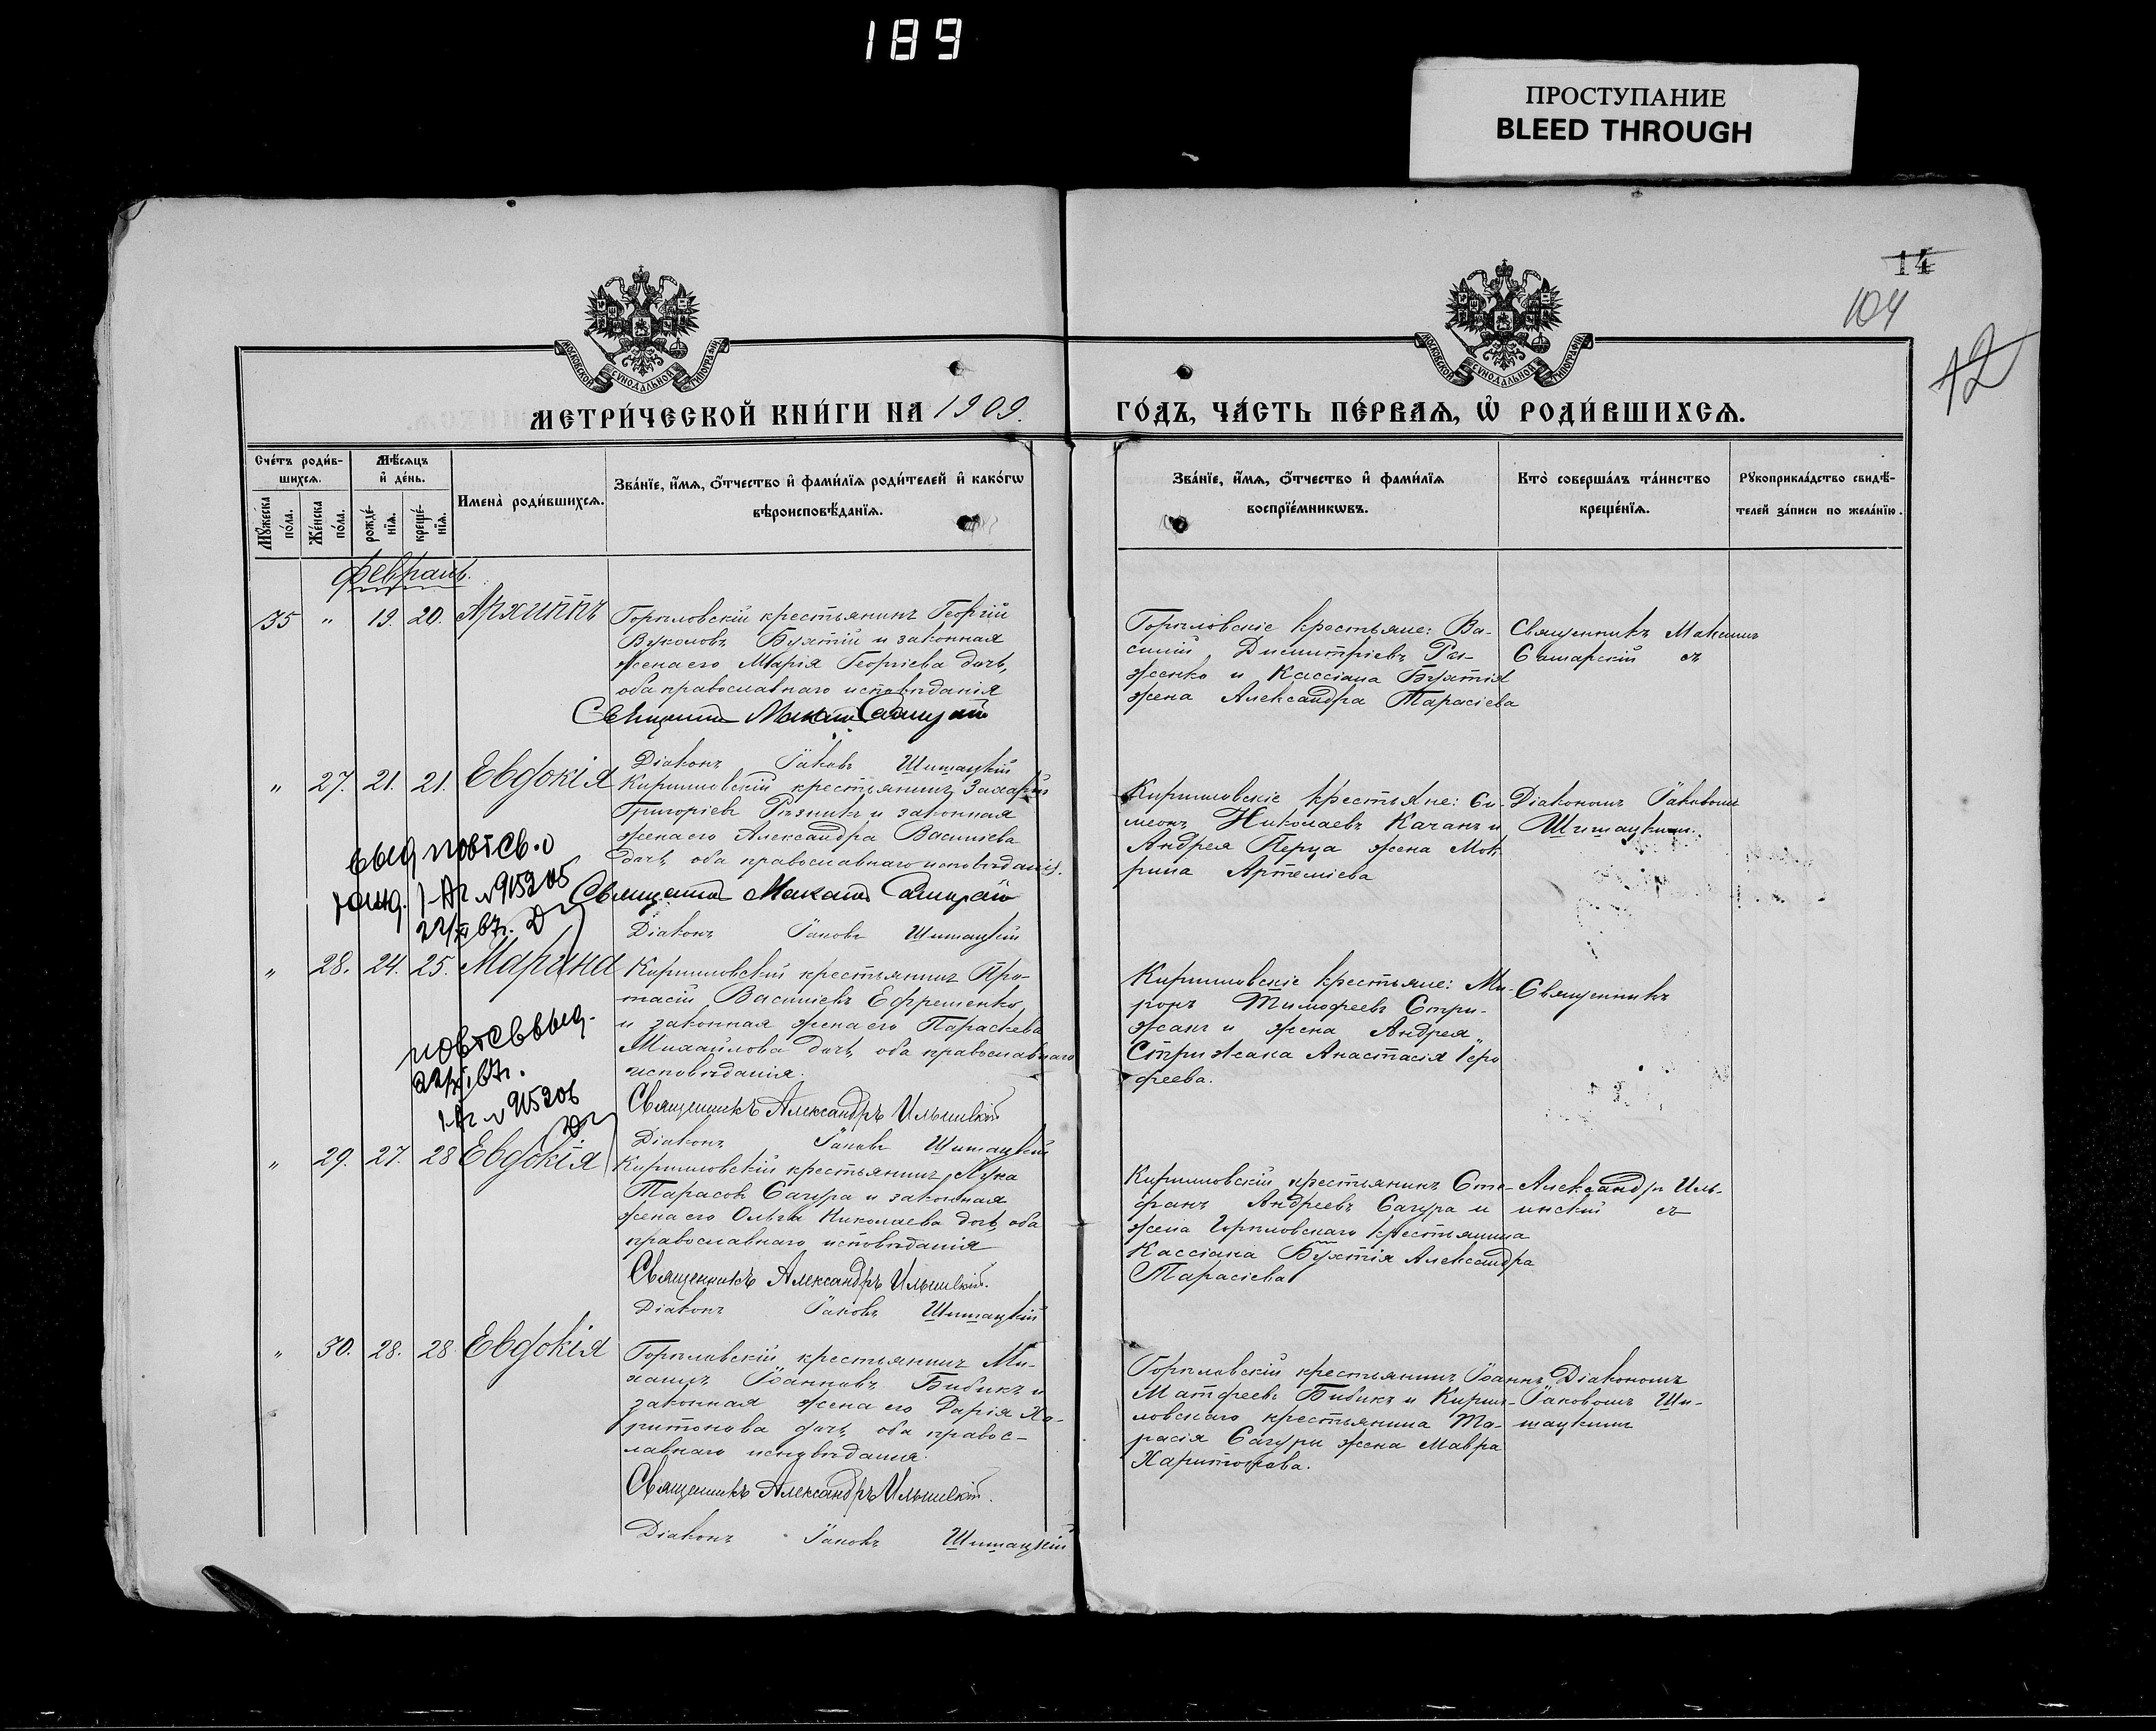 189
ПРОСТУПАНИЕ
BLEED THROUGH
14
104
12
МОСКОВСКОЙ СѴНОДАЛЬНОЙ ТИПОГРАФІИ
МОСКОВСКОЙ СѴНОДАЛЬНОЙ ТИПОГРАФІИ
МЕТРИ́ЧЕСКОЙ КНИ́ГИ НА 1909.
ГО́ДЪ, ЧА́СТЬ ПЕ́РВАѦ, Ѡ҆ РОДИ́ВШИХСѦ.
Сче́тъ роди́в-
шихсѧ.
Мꙋ́жеска по́ла.
Же́нска по́ла.
Мѣ́сѧцъ
и҆ де́нь.
рожде́-
нїѧ.
креще́-
нїѧ.
Имена̀ роди́вшихсѧ.
Зва́нїе, и҆́мѧ, ѻ҆́тчество и҆ фами́лїѧ роди́телей и҆ како́гѡ
вѣроисповѣ́данїѧ.
Зва́нїе, и҆́мѧ, ѻ҆́тчество и҆ фами́лїѧ
воспрїе́мникѡвъ.
Кто̀ соверша́лъ та́инство
креще́нїѧ.
Рꙋкоприкла́дство свидѣ́-
телей за́писи по жела́нїю.
Февраль.
35 " 19. 20. Архиппъ
Горѣловскій крестьянинъ Георгій
Вуколовъ Бухтій и законная
жена его Марія Георгіева дочь,
оба православнаго исповѣданія
Діаконъ Іаковъ Шишацкій
Горѣловскіе крестьяне: Ва-
силій Димитріевъ Ры-
женко и Кассіана Бухтія
жена Александра Тарасіева
Священникъ Максимъ
Самарскій съ
" 27. 21. 21. Евдокія
Кирилловскій крестьянинъ Захарій
Григоріевъ Рѣзникъ и законная
жена его Александра Васильева
дочь, оба православнаго исповѣданія.
Діаконъ Іаковъ Шишацкій
Кирилловскіе крестьяне: Си-
меонъ Николаевъ Качанъ и
Андрея Перца жена Мок-
рина Артеміева
Діакономъ Іаковомъ
Шишацкимъ.
" 28. 24. 25. Марина
Кирилловскій крестьянинъ Про-
тасій Васильевъ Ефременко
и законная жена его Параскева
Михайлова дочь, оба православнаго
исповѣданія.
Священникъ Александръ Ильинскій
Діаконъ Іаковъ Шишацкій
Кирилловскіе крестьяне: Ми-
ронъ Тимофеевъ Стри-
жакъ и жена Андрея
Стрижака Анастасія Іеро
феева.
Священникъ
" 29. 27. 28 Евдокія
Кирилловскій крестьянинъ Лука
Тарасовъ Сагура и законная
жена его Ольга Николаева дочь, оба
православнаго исповѣданія
Священникъ Александръ Ильинскій.
Діаконъ Іаковъ Шишацкій
Кирилловскій крестьянинъ Сте-
фанъ Андреевъ Сагура и
жена Горѣловскаго крестьянина
Кассіана Бухтія Александра
Тарасіева
Александръ Иль-
инскій съ
" 30. 28. 28 Евдокія
Горѣловскій крестьянинъ Ми-
хаилъ Іоанновъ Бибикъ и
законная жена его Дарія Ха-
ритонова дочь, оба правос-
лавнаго исповѣданія.
Священникъ Александръ Ильинскій.
Діаконъ Іаковъ Шишацкій
Горѣловскій крестьянинъ Іоаннъ
Матфеевъ Бибикъ и Кирил-
ловскаго крестьянина Та-
расія Сагуры жена Мавра
Харитонова.
Діакономъ
Іаковомъ Ши-
шацкимъ